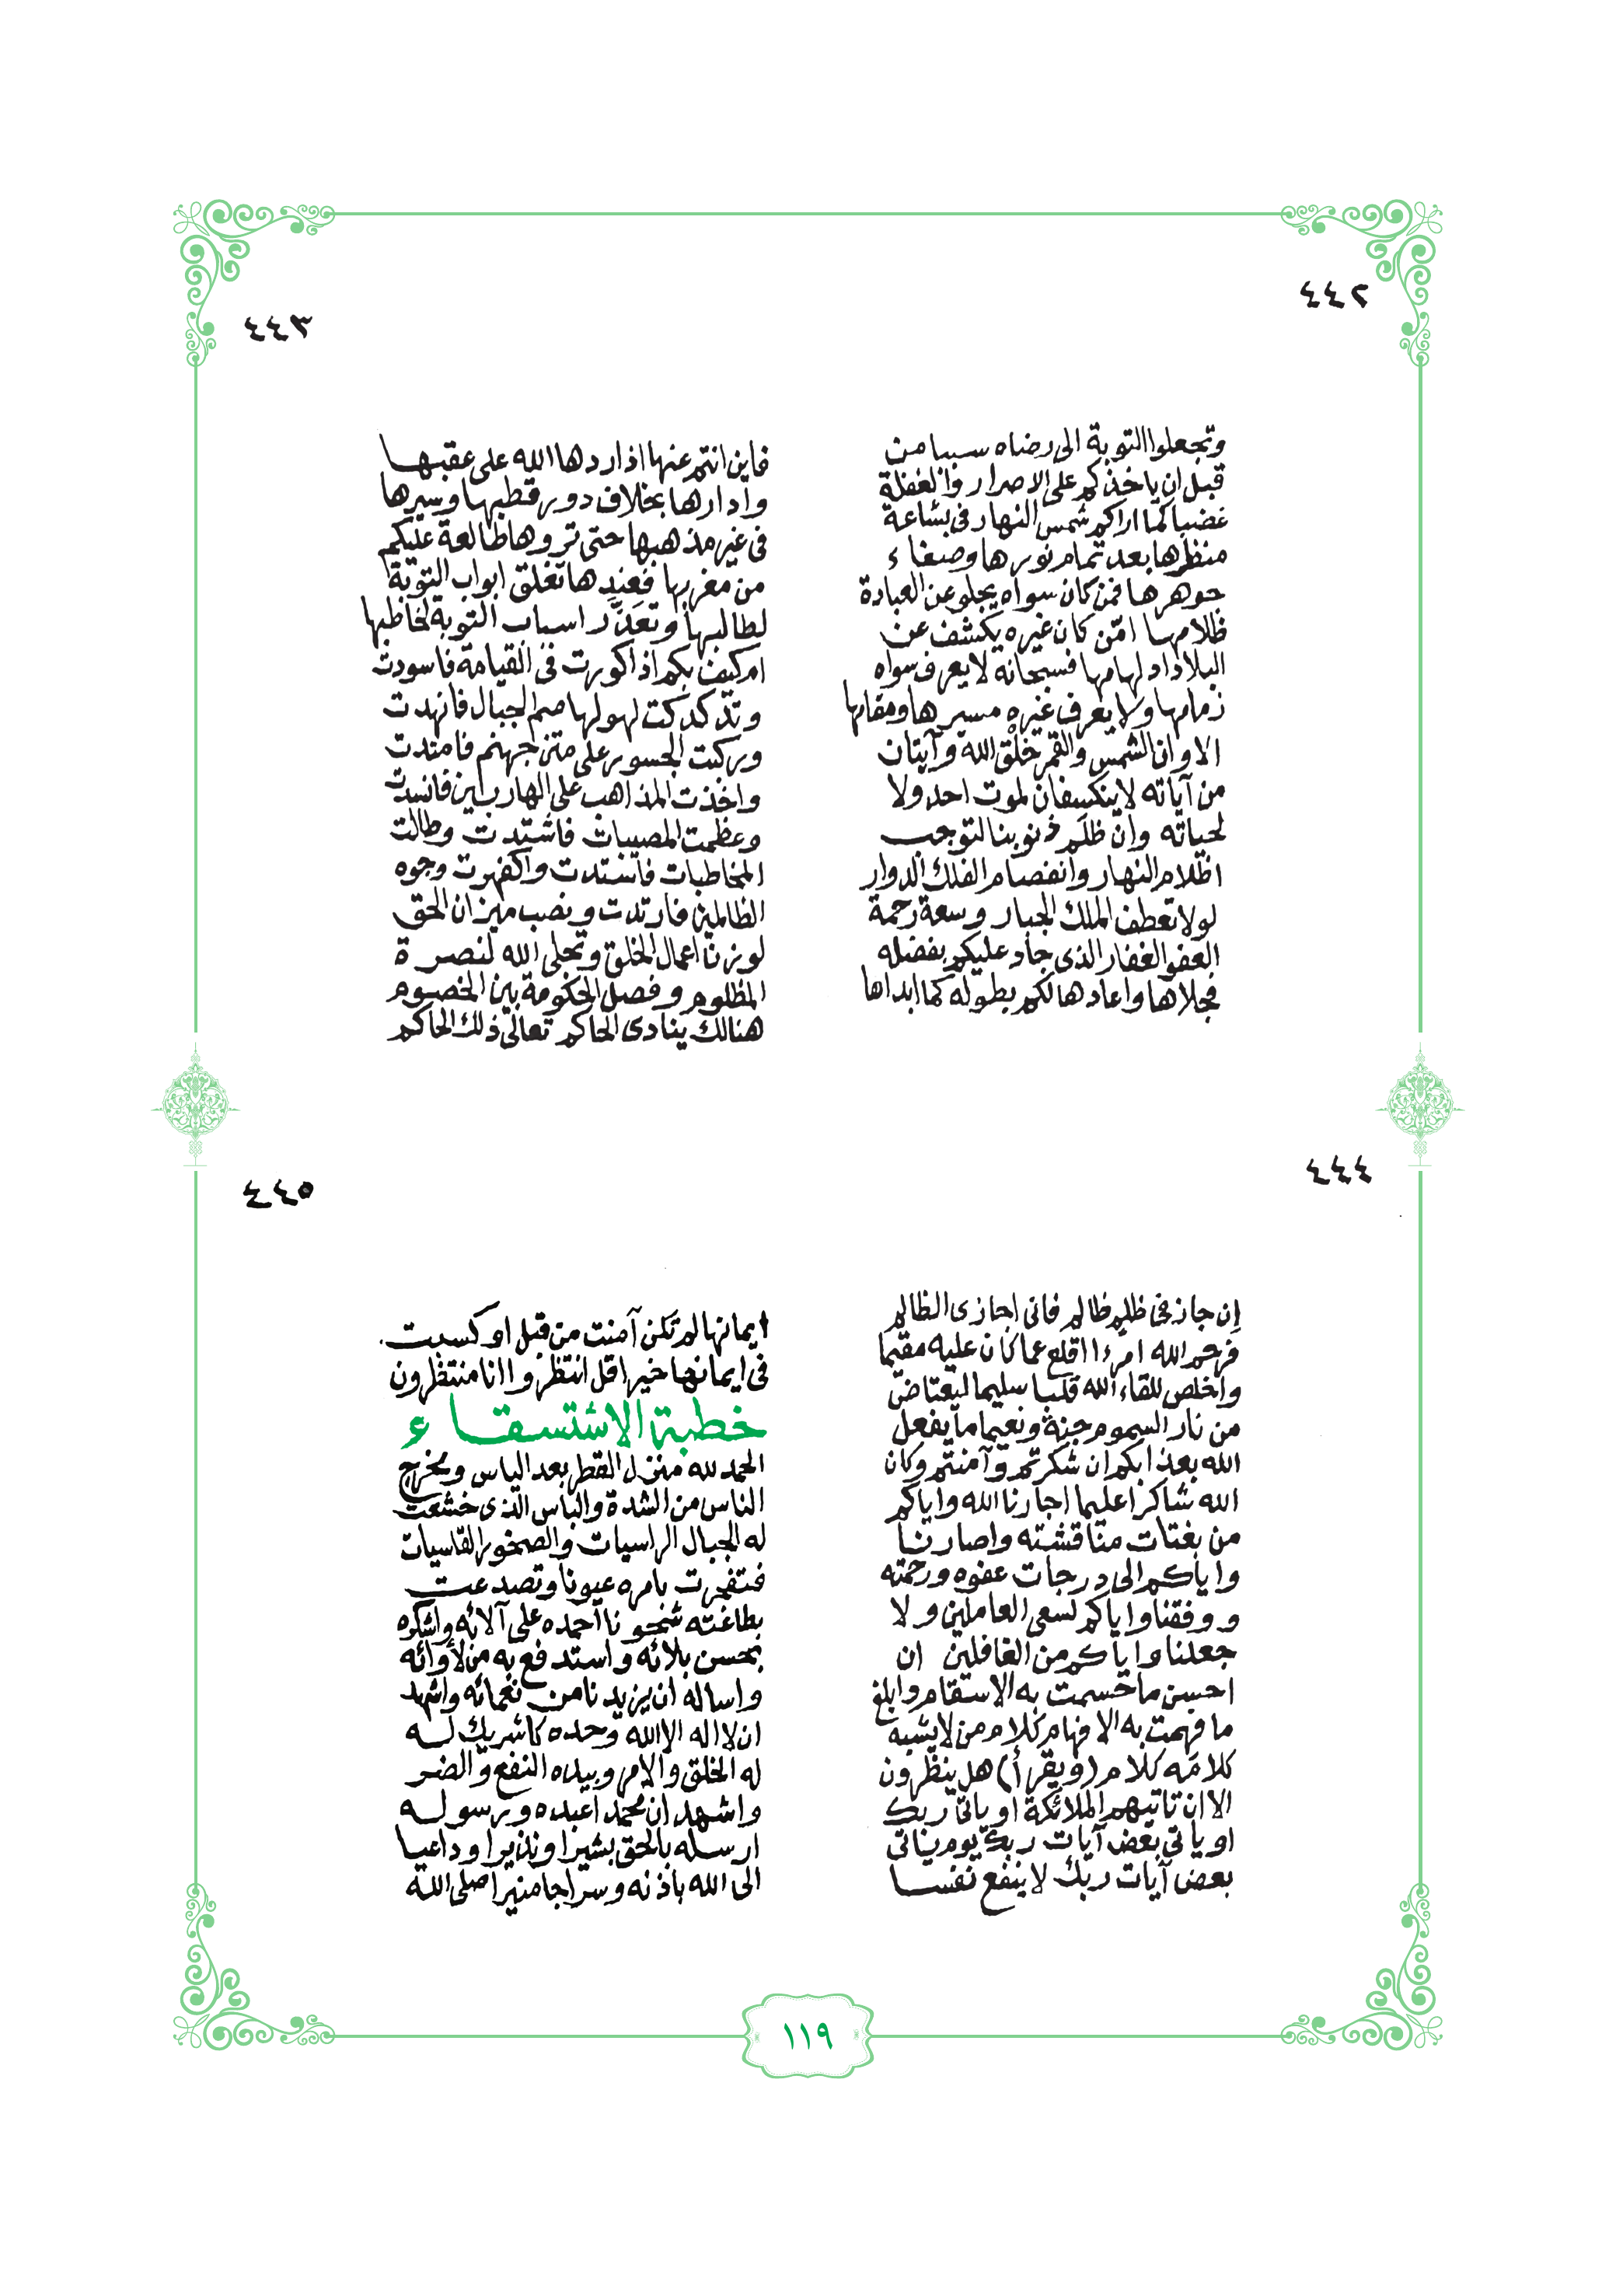 ٤٤٢
وتجعلوا التوبة الى رضاه سببا من
قبل ان ياخذكم على الاصرار والغفلة
غضبا كما اراكم شمس النهار فى بشاعة
منظرها بعد تمام نورها وصفاء
جوهرها فمن كان سواه يجلو عن العبادة
ظلامها امّن كان غيره يكشف عن
البلاد ادلهامها فسبحانه لا يعرف سواه
زمامها ولا يعرف غيره مسيرها ومقامها
الا وان الشمس والقمر خلْق الله وآيتان
من آياته لا ينكسفان لموت احد ولا
لحياته وانّ ظلَم ذنوبنا لتوجب
اظلام النهار وانفصام الفلك الدوار
لولا تعطف الملك الجبار وسعة رحمة
العفو الغفار الذى جاد عليكم بفضله
فجلاها واعادها لكم بطوله كما ابداها
٤٤٣
فاين انتم عنها اذا ردها الله على عقبها
وادارها بخلاف دور قطبها وسيرها
فى غير مذهبها حتى تروها طالعة عليكم
من مغربها فعندها تغلق ابواب التوبة
لطالبها وتعَذَّر اسباب التوبة لخاطبها
ام كيف بكم اذا كورت فى القيامة فاسودت
وتدكدكت لهولها صم الجبال فانهدت
وركبت الجسور على متن جهنم فامتدت
واخذت المذاهب على الهاربين فانسدت
وعظمت المصيبات فاشتدت وطالت
المخاطبات فاشتدت واكفهرت وجوه
الظالمين فارتدت ونصب ميزان الحق
لوزن اعمال الخلق وتجلى الله لنصرة
المظلوم وفصل الحكومة بين الخصوم
هنالك ينادى الحاكم تعالى ذلك الحاكم
٤٤٤
إن جاز فى ظلم ظالم فانى اجازى الظالم
فرحم الله امرءا اقلع عما كان عليه مقيما
واخلص للقاء الله قلبا سليما ليعتاض
من نار السموم جنة ونعيما ما يفعل
الله بعذابكم ان شكرتم وآمنتم وكان
الله شاكرا عليما اجارنا الله واياكم
من بغتات مناقشته واصارنا
واياكم الى درجات عفوه ورحمته
ووفقنا واياكم لسعى العاملين ولا
جعلنا واياكم من الغافلين ان
احسن ما حسمت به الاسقام وابلغ
ما فهمت به الافهام كلام من لا يشبه
كلامَه كلام (ويقرأ) هل ينظرون
الا ان تاتيهم الملائكة او ياتى ربك
او ياتى بعض آيات ربك يوم ياتى
بعض آيات ربك لا ينفع نفسا
٤٤٥
ايمانها لم تكن آمنت من قبل او كسبت
فى ايمانها خيرا قل انتظروا انا منتظرون
خطبة الاستسقاء
الحمد لله منزل القطر بعد الياس ومخرج
الناس من الشدة والباس الذى خشعت
له الجبال الراسيات والصخور القاسيات
فتفجرت بامره عيونا وتصدعت
بطاعته شجونا احمده على آلائه واشكره
بحسن بلائه واستدفع به من لأوائه
واساله ان يزيدنا من نعمائه واشهد
ان لا اله الا الله وحده لا شريك له
له الخلق والامر وبيده النفع والضر
واشهد ان محمدا عبده ورسوله
ارسله بالحق بشيرا ونذيرا وداعيا
الى الله باذنه وسراجا منيرا صلى الله
١١٩